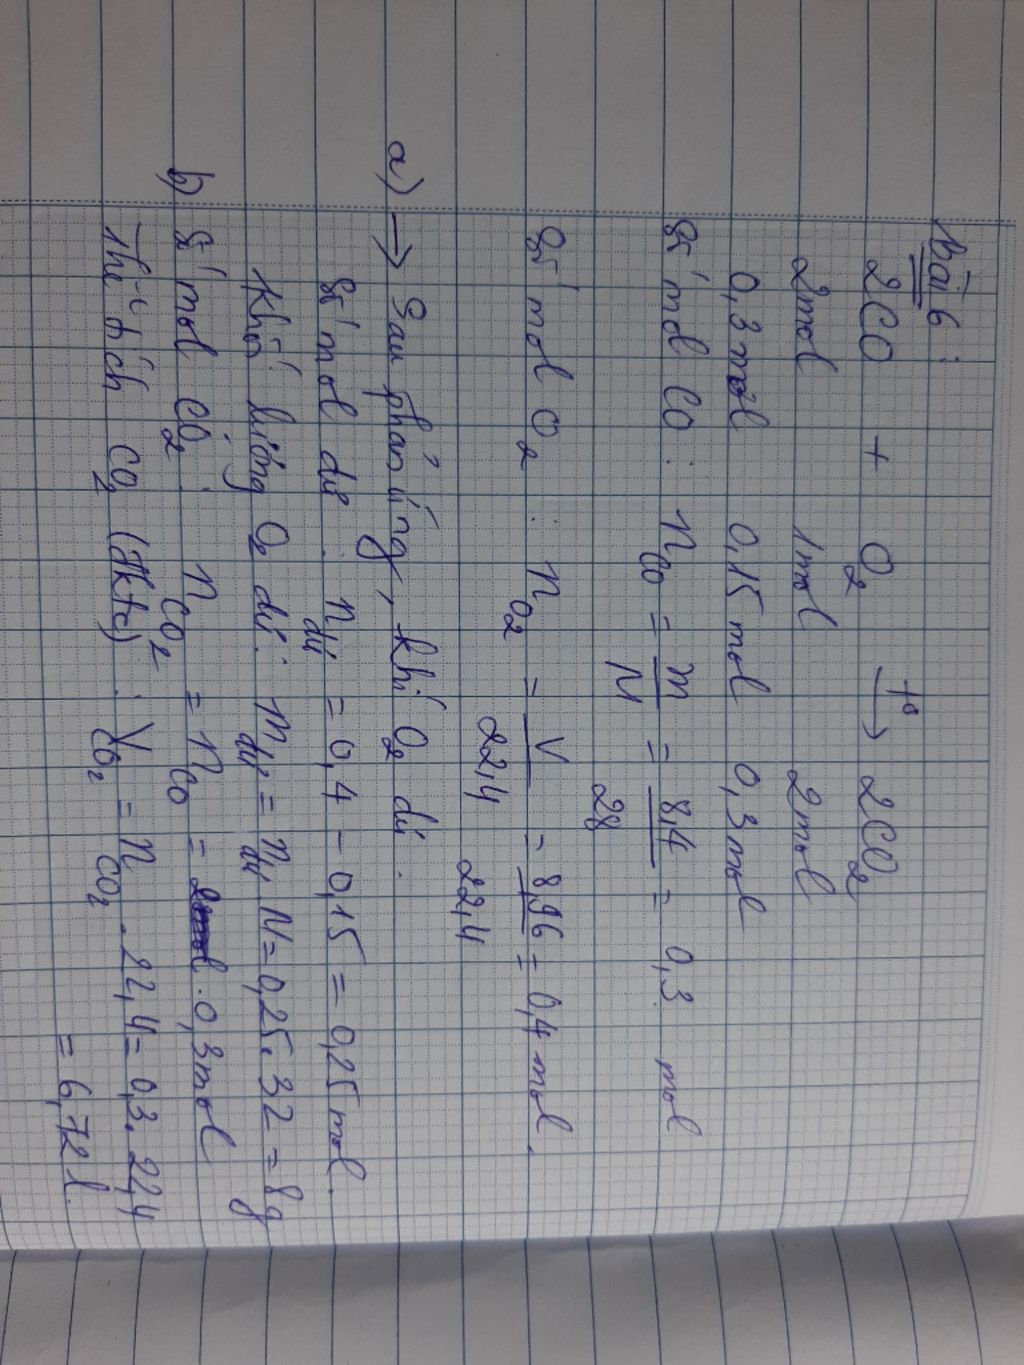 Bài 6:
2CO + O2 t° → 2CO2
2mol 1mol 2mol
0,3mol 0,15mol 0,3mol
Số mol CO: nCO = m/M = 8,4/28 = 0,3 mol
Số mol O2: nO2 = V/22,4 = 8,96/22,4 = 0,4 mol.
a) → Sau phản ứng, khí O2 dư.
Số mol dư: ndư = 0,4 - 0,15 = 0,25 mol.
Khối lượng O2 dư: mdư = ndư M = 0,25.32 = 8g
b) Số mol CO2: nCO2 = nCO = 0,3mol
Thể tích CO2 (đktc): VCO2 = nCO2 . 22,4 = 0,3. 22,4
= 6,72 l.